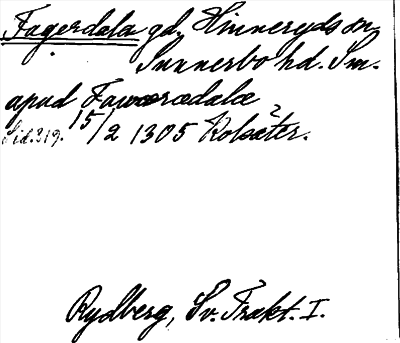 Fagerdala gd, Hinneryds sn,
Sunnerbo hd. Sm.
apud Fawærædalæ
Sid. 319. 15/2 1305 Kolsæter. ?
Rydberg, Sv. Trakt. I.